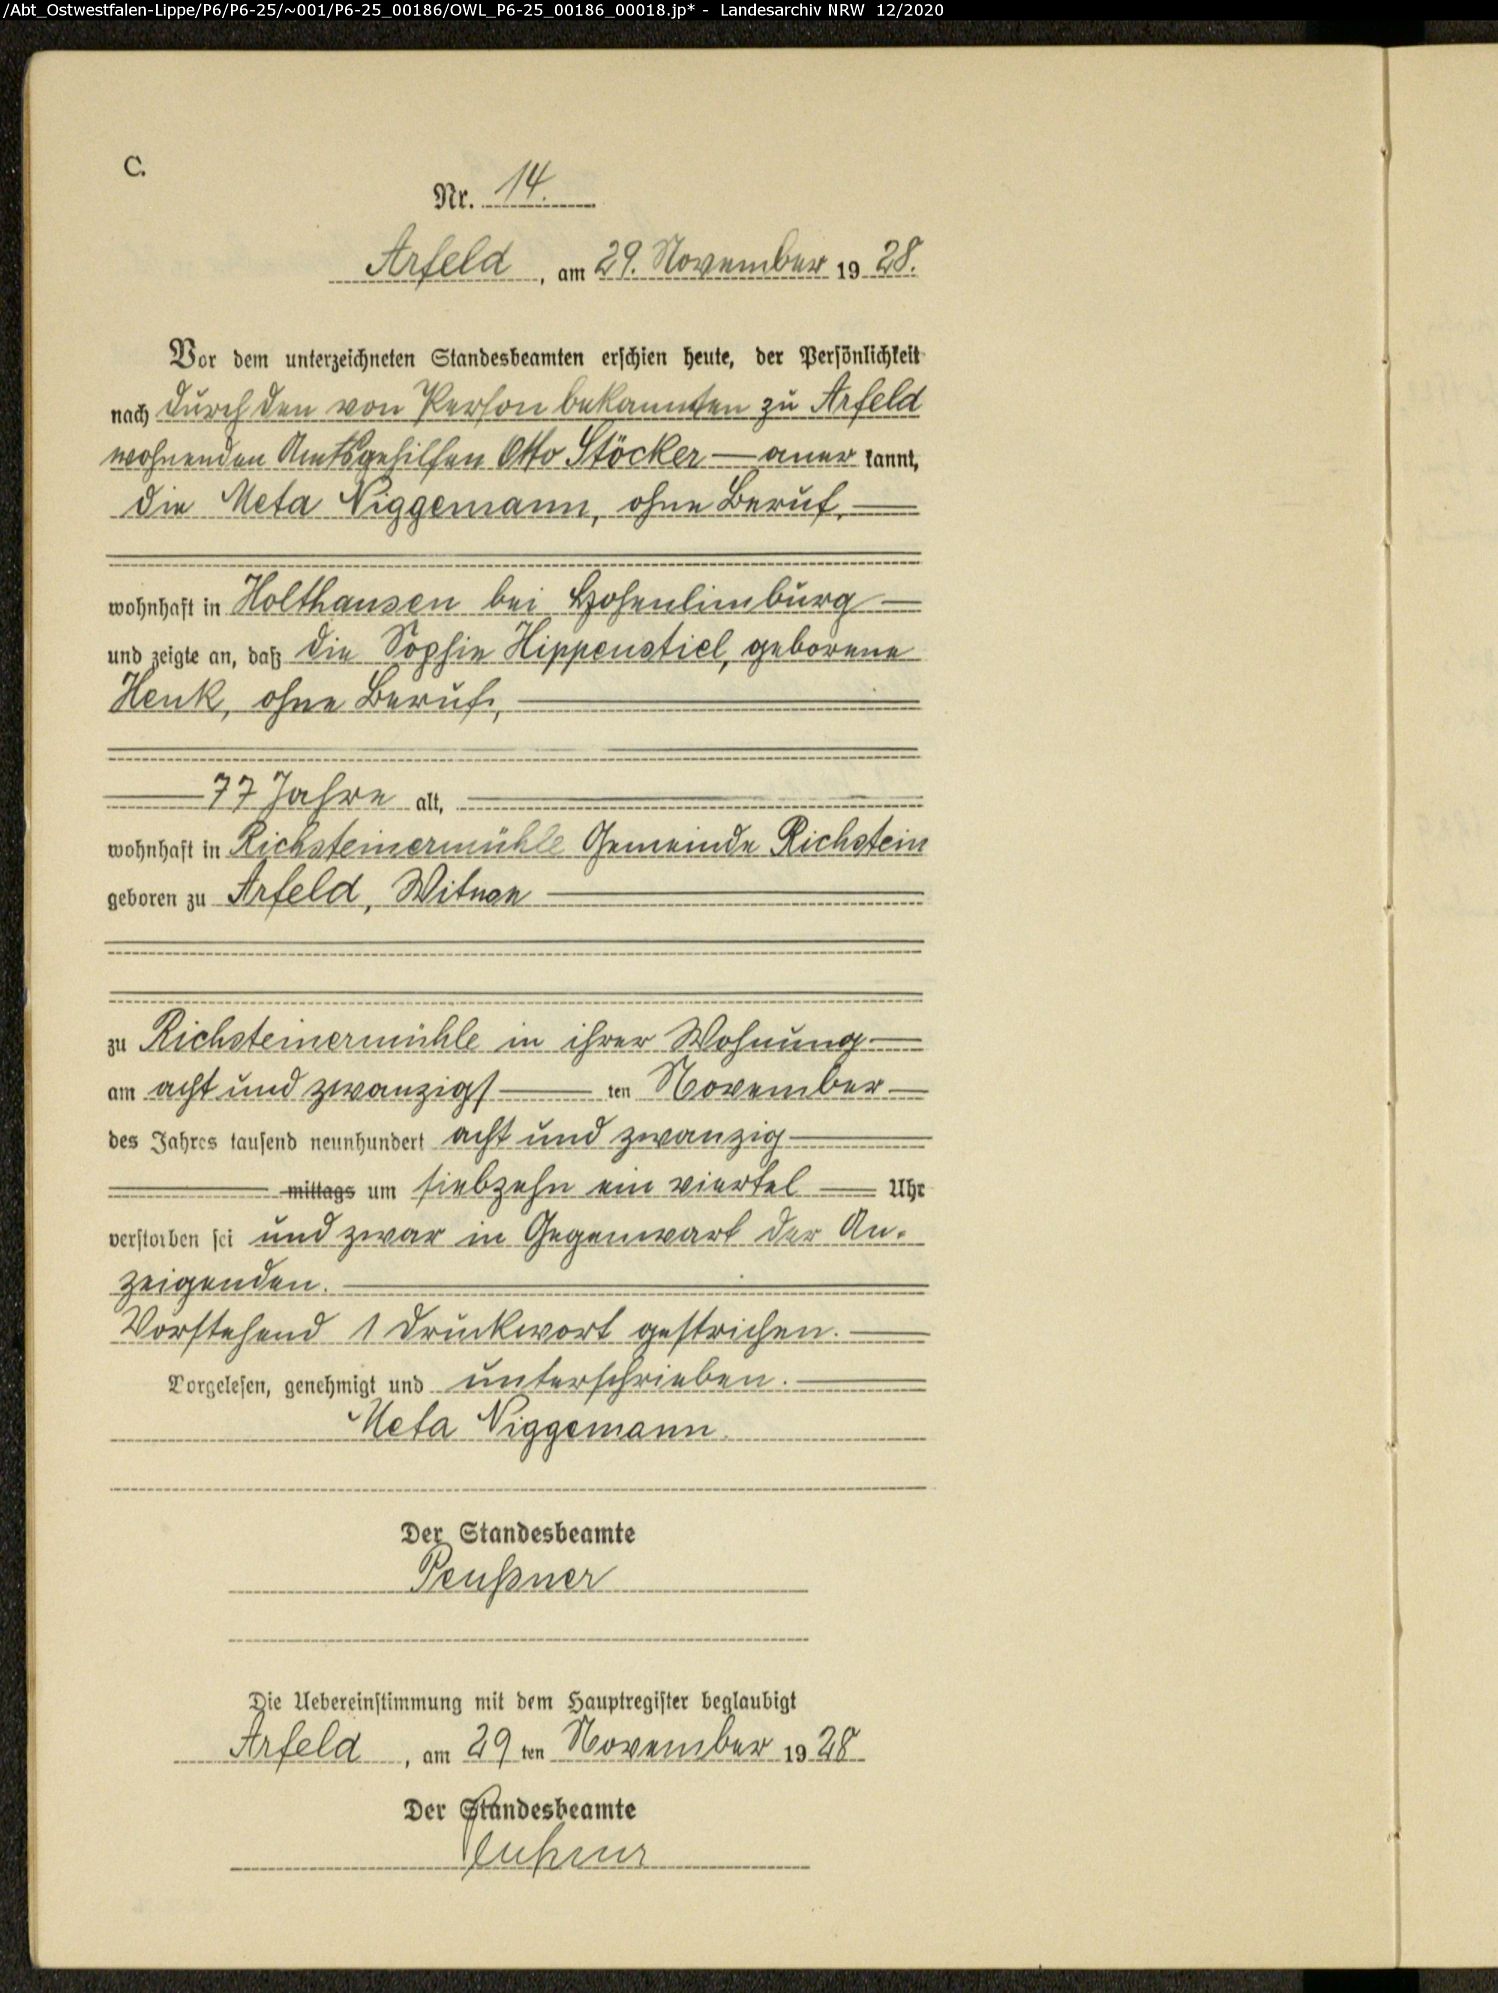 /Abt_Ostwestfalen-Lippe/P6/P6-25/~001/P6-25_00186/OWL_P6-25_00186_00018.jp* - Landesarchiv NRW 12/2020
C.
Nr. 14.
Arfeld, am 29. November 1928.
Vor dem unterzeichneten Standesbeamten erschien heute, der Persönlichkeit
nach durch den von Person bekannten zu Arfeld
wohnenden Amtsgehilfen Otto Stöcker — aner kannt,
die Meta Niggemann, ohne Beruf,
wohnhaft in Holthausen bei Hohenlimburg
und zeigte an, daß die Sophie Hippenstiel, geborene
Henk, ohne Beruf,
77 Jahre alt,
wohnhaft in Richsteinermühle Gemeinde Richstein
geboren zu Arfeld, Witwe
zu Richsteinermühle in ihrer Wohnung
am acht und zwanzigs — ten November
des Jahres tausend neunhundert acht und zwanzig
mittags um siebzehn ein viertel — Uhr
verstorben sei und zwar in Gegenwart der An-
zeigenden.
Vorstehend 1 Druckwort gestrichen.
Vorgelesen, genehmigt und unterschrieben.
Meta Niggemann.
Der Standesbeamte
Peußner
Die Uebereinstimmung mit dem Hauptregister beglaubigt
Arfeld, am 29 ten November 1928
Der Standesbeamte
Peußner